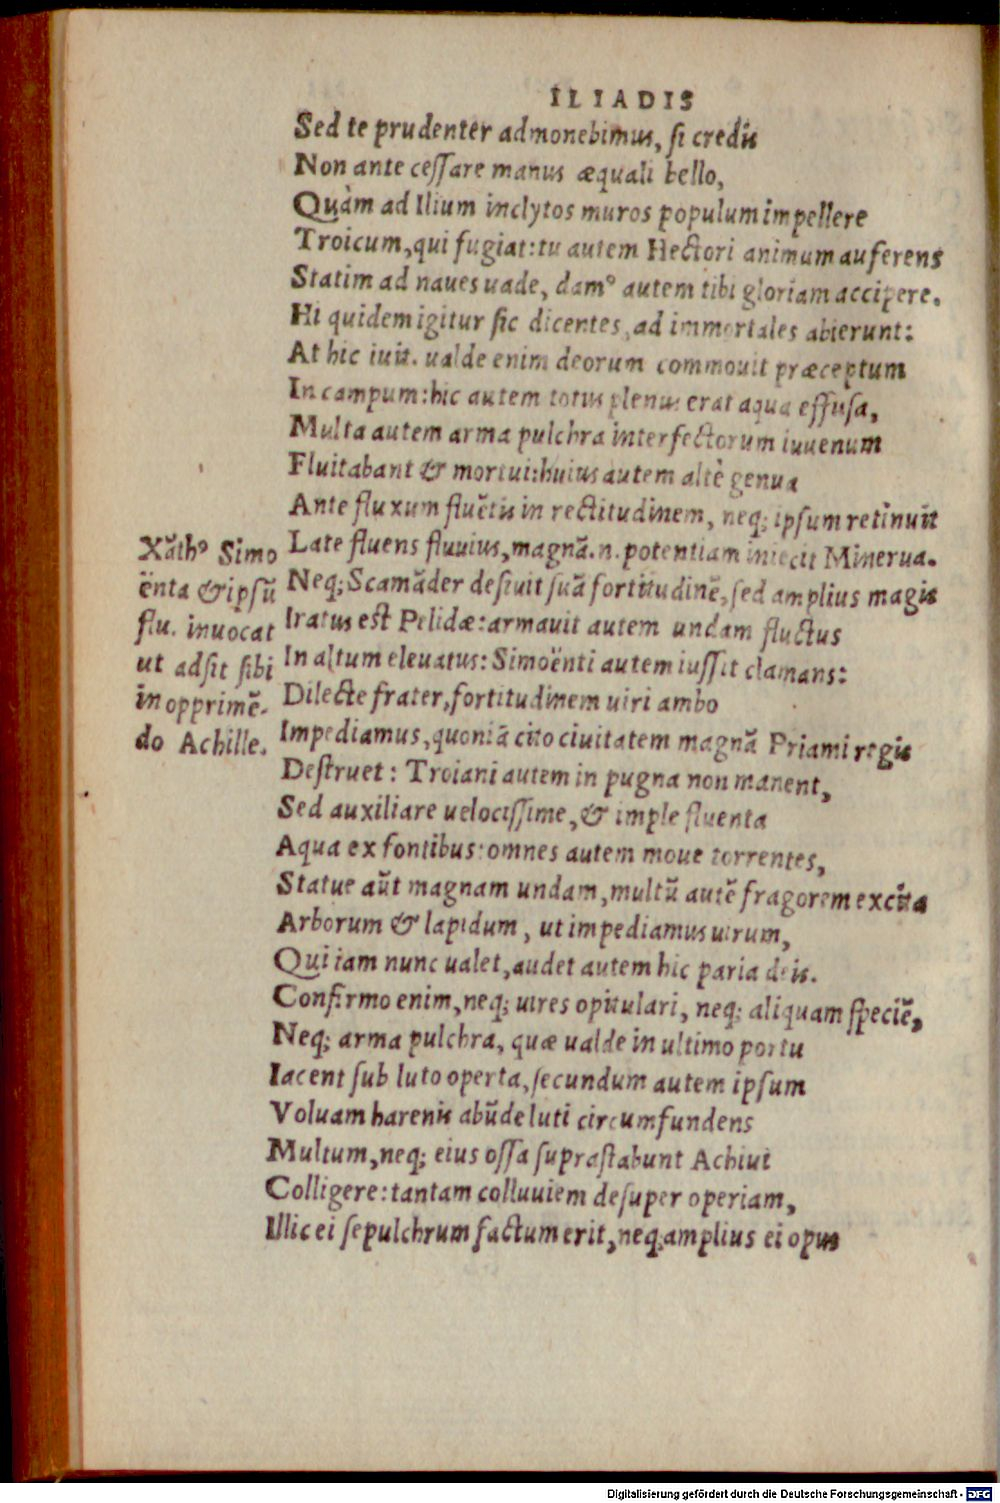 ILIADIS
Sed te prudenter admonebimus, ſi credis
Non ante ceſſare manus æquali bello,
Quàm ad Ilium inclytos muros populum impellere
Troicum, qui fugiat: tu autem Hectori animum auferens
Statim ad naues uade, damꝰ autem tibi gloriam accipere.
Hi quidem igitur ſic dicentes, ad immortales abierunt:
At hic iuit. ualde enim deorum commouit præceptum
In campum: hic autem totus plenus erat aqua effuſa,
Multa autem arma pulchra interfectorum iuuenum
Fluitabant & mortui: huius autem altè genua
Ante fluxum fluctis in rectitudinem, neq; ipſum retinuit
Late fluens fluuius, magnā. n. potentiam iniecit Minerua.
Neq; Scamāder deſiuit ſuā fortitudinē, ſed amplius magis
Iratus est Pelidæ: armauit autem undam fluctus
In altum eleuatus: Simoënti autem iuſſit clamans:
Dilecte frater, fortitudinem uiri ambo
Impediamus, quoniā cito ciuitatem magnā Priami regis
Deſtruet: Troiani autem in pugna non manent,
Sed auxiliare uelociſſime, & imple fluenta
Aqua ex fontibus: omnes autem moue torrentes,
Statue aūt magnam undam, multū autē fragorem excita
Arborum & lapidum, ut impediamus uirum,
Qui iam nunc ualet, audet autem hic paria deis.
Confirmo enim, neq; uires opitulari, neq; aliquam ſpeciē,
Neq; arma pulchra, quæ ualde in ultimo portu
Iacent ſub luto operta, ſecundum autem ipſum
Voluam harenis abūde luti circumfundens
Multum, neq; eius oſſa ſupraſtabunt Achiui
Colligere: tantam colluuiem deſuper operiam,
Illic ei ſepulchrum factum erit, neq; amplius ei opus
Xāthꝰ Simo
ënta & ipſū
flu. inuocat
ut adſit ſibi
in opprimē-
do Achille.
Digitalisierung gefördert durch die Deutsche Forschungsgemeinschaft - DFG